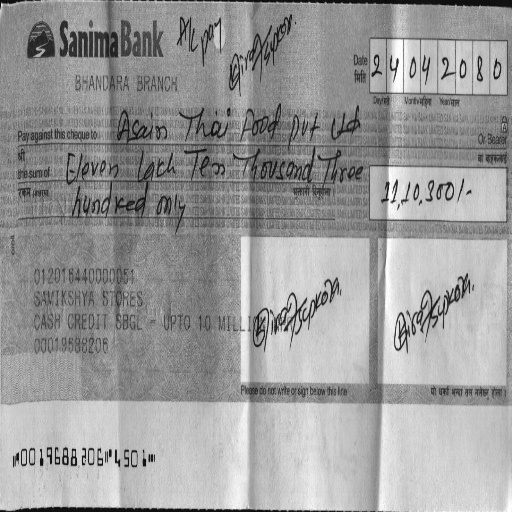 Sanima Bank
A/c pay
BHANDARA BRANCH
Date
मिति
24042080
Day/गते Month/महिना Year/साल
Pay against this cheque to Asian Thai Food pvt Ltd
Or Bearer
श्री
वा वाहकलाई
the sum of Eleven lach Ten Thousand Three
hundred only
11,10,300/-
012016440000051
SAWIKSHYA STORES
CASH CREDIT SBGL - UPTO 10 MILLI
00019688206
Please do not write or sign below this line
⑈0019688206⑈4501⑈